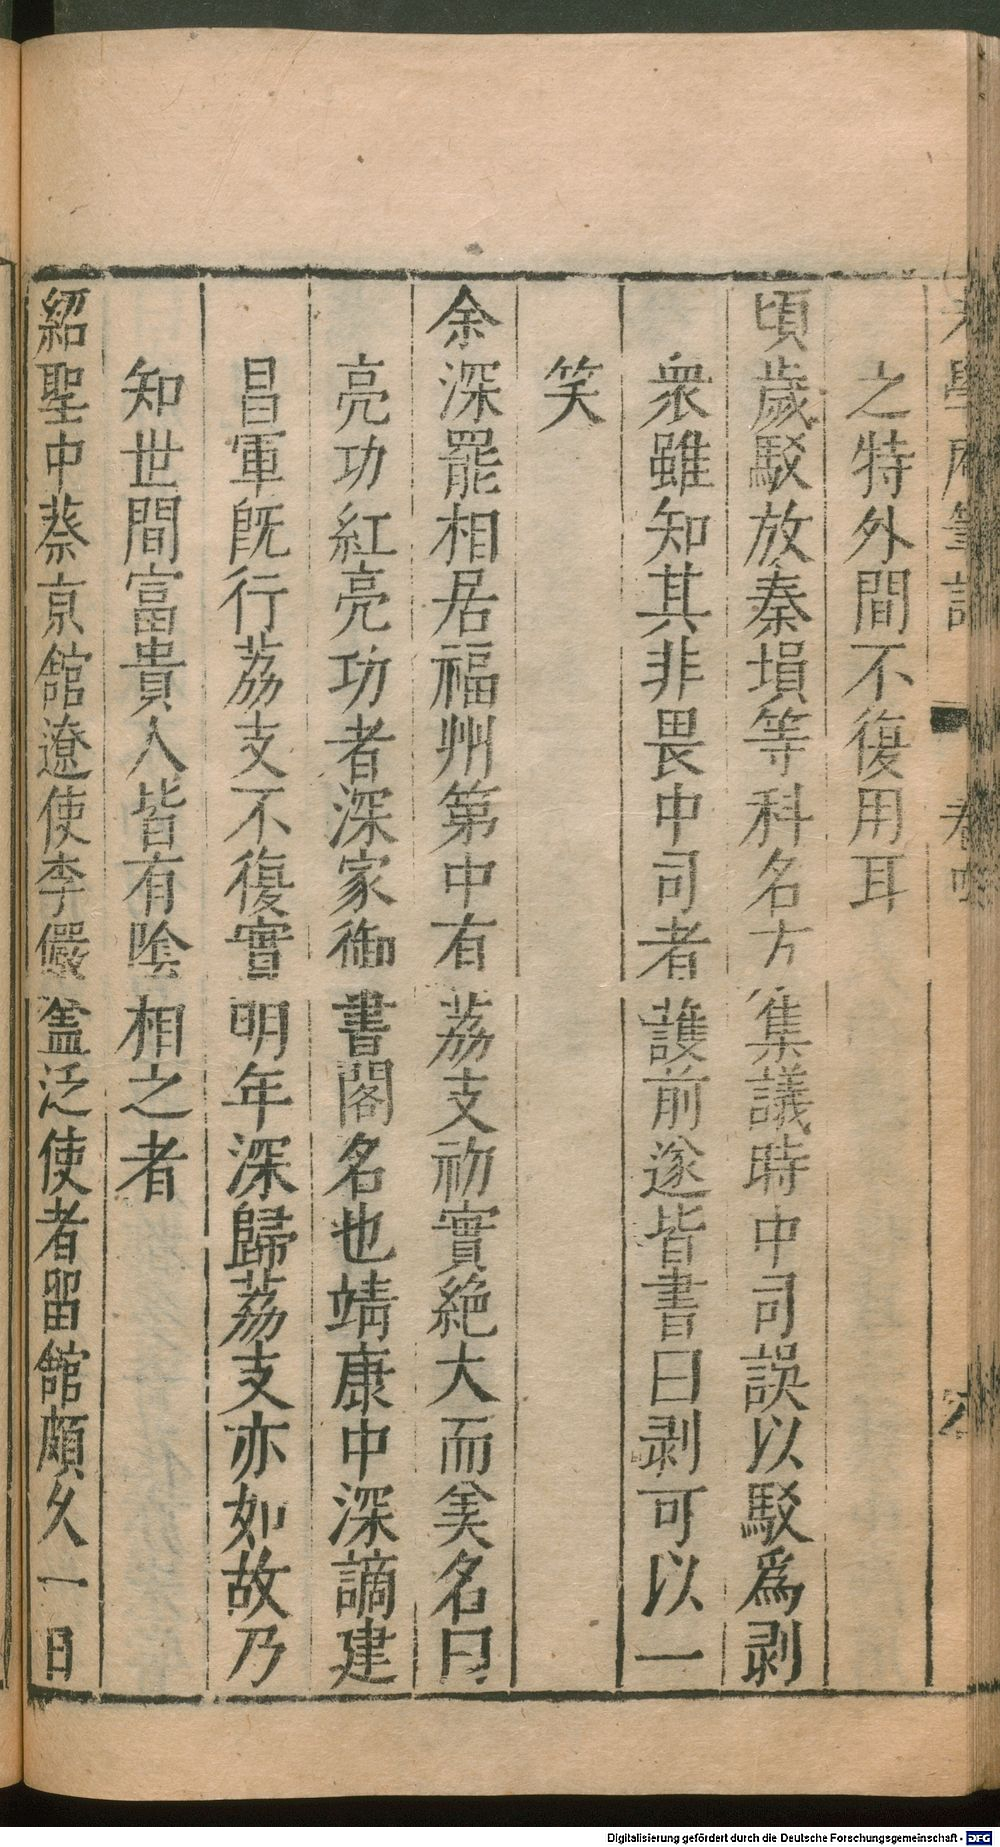 老學庵筆記 卷
之特外間不復用耳
頃歲駁放秦塤等科名方集議時中司誤以駁爲剥
衆雖知其非畏中司者護前遂皆書曰剥可以一
笑
余深罷相居福州第中有荔支初實絶大而美名曰
亮功紅亮功者深家御書閣名也靖康中深謫建
昌軍旣行荔支不復實明年深歸荔支亦如故乃
知世間富貴人皆有陰相之者
紹聖中蔡京舘遼使李儼盖泛使者留舘頗久一日
Digitalisierung gefördert durch die Deutsche Forschungsgemeinschaft - DFG